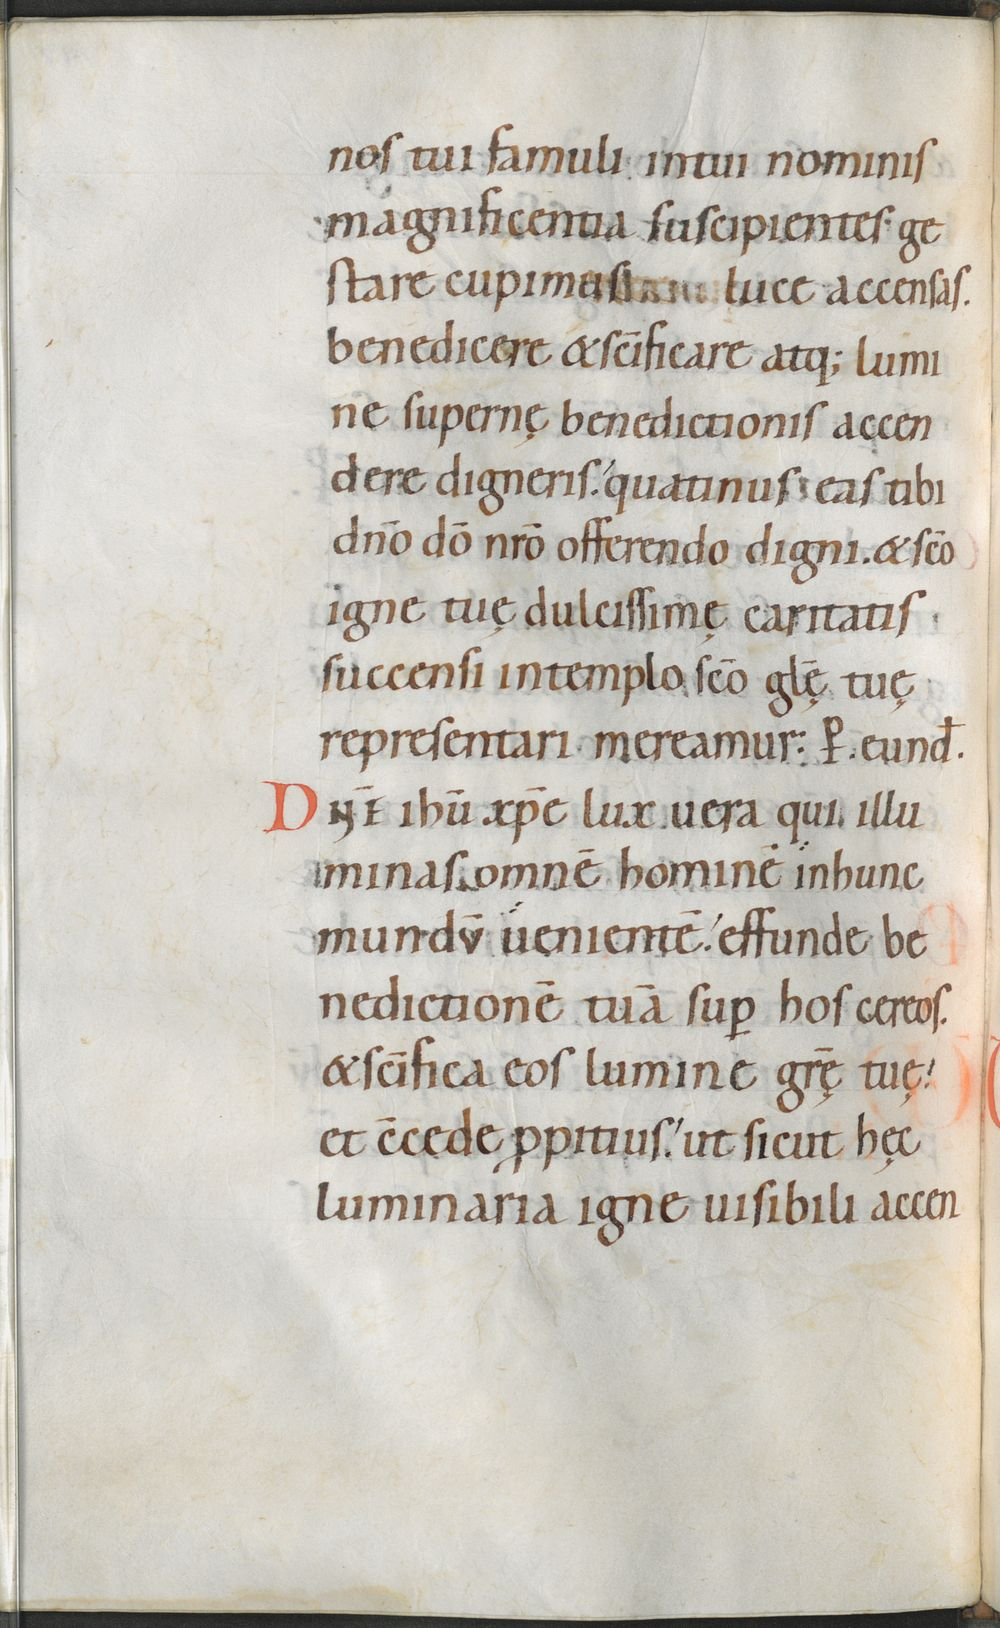 nos tui famuli intui nominis
magnificentia suscipientes ge
stare cupimus luce accensas.
benedicere & sc̄ificare atq; lumi
ne supernę benedictionis accen
dere digneris. quatinus eas tibi
dn̄o dō nr̄o offerendo digni. & sc̄o
igne tuę dulcissimę caritatis
succensi intemplo sc̄o glę̄ tuę
representari mereamur: P. eund.
Dn̄e ihū xp̄e lux uera qui illu
minas omnē hominē inhunc
mundū uenientē. effunde be
nedictionē tuā sup̱ hos cereos.
& sc̄ifica eos lumine grę̄ tuę!
et c̄cede ꝓpitius. ut sicut hęc
luminaria igne uisibili accen